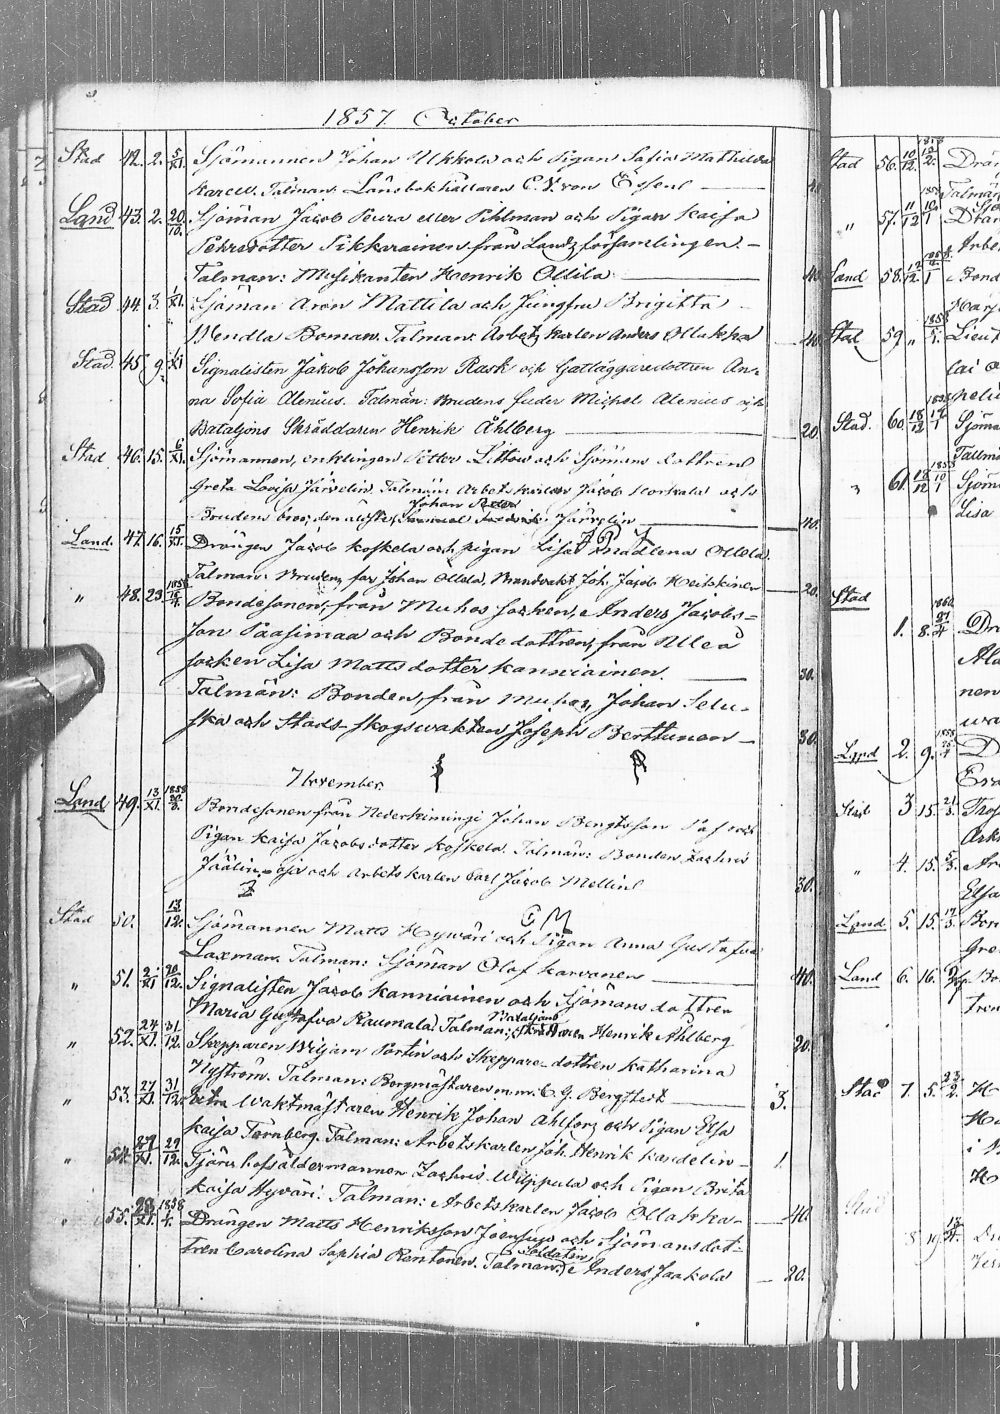 1857. October
Stad 42. 2. 5/XI. Sjömannen Johan Ukkola och Pigan Sofia Mathilda
Karell. Talman: Länsbokhållaren C. V. von Essen 40.
Land 43. 2. 20/10. Sjöman Jacob Pura eller Pihlman och Pigan Kaisa
Pehrsdotter Pikkarainen från Landsförsamlingen.
Talman: Musikanten Henrik Ollila 40.
Stad 44. 3. 1/XI. Sjöman Aron Mattila och Jungfru Brigitta
Wendla Boman. Talman: Arbetskarlen Anders Ollakka 40.
Stad. 45. 9. 1/XI Signalisten Jakob Johansson Rask och Gatläggaredottren An-
na Sofia Alenius. Talmän: Brudens fader Michel Alenius och
Bataljons Skräddaren Henrik Åhlberg 20.
Stad 46. 15. 6/XI. Sjömannen, enklingen Petter Littow och Sjömans dottren
Greta Lovisa Järvelin. Talmän: Arbetskarlen Jacob Korkala och
Johan Petter
Brudens bror, den äldste, Järvelin 40.
Land. 47. 16. 15/XI. Drängen Jacob Koskela och pigan Lisa Madlena Ollela.
Talman: Brudens far Johan Ollela, Brandvakt Joh. Jacob Heiskinen 20.
" 48. 23. 1858 Bondesonen, från Muhos socken, Anders Jacobs-
son Paasimaa och Bondedottren, från Uleå
socken Lisa Mattsdotter Kanniainen. 30.
Talmän: Bonden, från Muhos, Johan Selu-
ska och Stads-skogsvakten Joseph Berttunen 30.
November
Land 49. 13/XI. 1858 Bondesonen från Nederkiminge Johan Bengtsson och
Pigan Kaisa Jacobsdotter Koskela. Talmän: Bonden Zachris
Jäälinoja och Arbetskarlen Carl Jacob Mellin 30.
Stad 50. 13/12. Sjömannen Matts Hyväri och Pigan Anna Gustafva
Laxman. Talman: Sjöman Olof Karvonen 40.
" 51. 2/XI 20/12. Signalisten Jacob Kanniainen och Sjömans dottren
Maria Gustafva Raumala. Talman: Bataljons Skräddaren Henrik Åhlberg 20.
" 52. 24/XI. 31/12. Skepparen Wiljam Portin och Skeppare-dottren Katharina
Nyström. Talman: Borgmästaren m.m. C. G. Bergstedt 3.
" 53. 27/XI 31/12. Extra Waktmästaren Henrik Johan Ahlfors och Pigan Elsa
Kaisa Törnberg. Talman: Arbetskarlen Joh. Henrik Kandelin 1.
" 54. 29/XI. 29/12. Tjärhofsåldermannen Zachris Wilppula och Pigan Brita
Kaisa Hyväri. Talman: Arbetskarlen Jacob Ollakka 40.
" 55. 28/XI. 1858 Drängen Matts Henriksson Joensuu och Sjömansdot-
tren Carolina Sophia Rentonen. Talman: Soldaten Anders Jaakola 20.
Stad 56. 10/12
Talmän
" 57. 11/12
Land 58. 12/12 Bond
Stad 59. " Lieut
Stad. 60. 18/12 Sjöma
Talmä
" 61. 18/12 Sjöm
Lisa
Stad
1. 8. 1860 Drä
Land 2. 9. 1858
Eva
Stad 3. 15.
" 4. 15.
Elsa
Land 5. 15. Bon
Gre
Land 6. 16.
tren
Stad 7. 5. 23/2.
Stad 8.